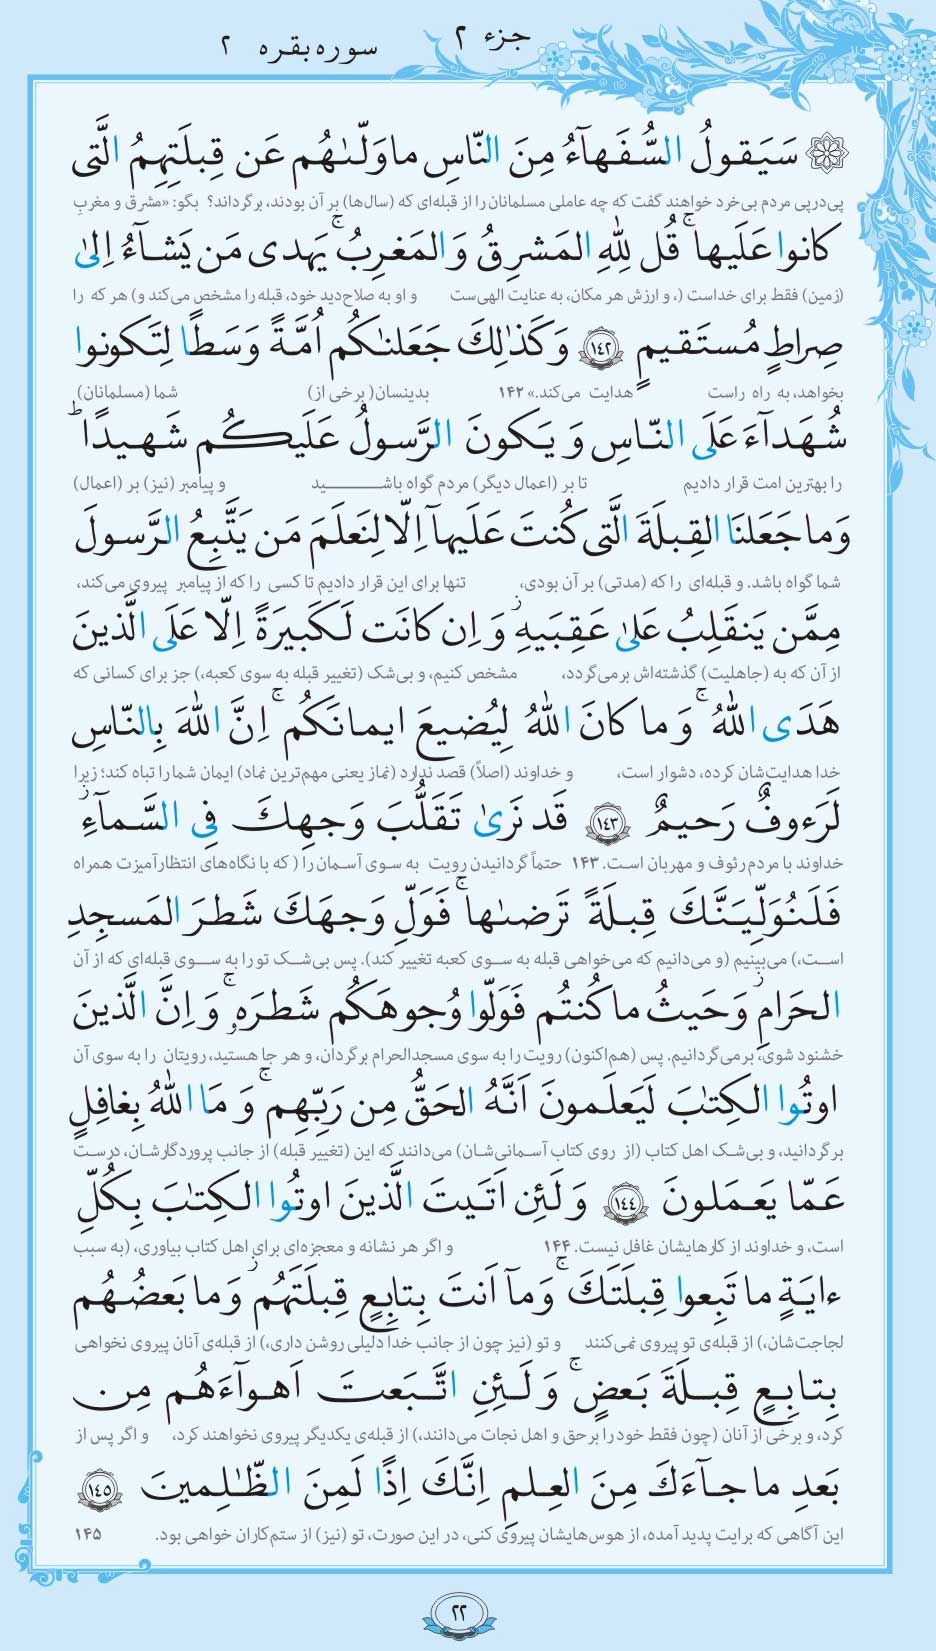 جزء ۲
سوره بقره ۲
سَيَقولُ السُّفَهاۤءُ مِنَ النّاسِ ماوَلّىٰهُم عَن قِبلَتِهِمُ الَّتى
پی‌درپی مردم بی‌خرد خواهند گفت که چه عاملی مسلمانان را از قبله‌ای که (سال‌ها) بر آن بودند، برگرداند؟ بگو: «مشرق و مغربِ
كانوا عَلَيها ۚ قُل لِلّٰهِ المَشرِقُ وَالمَغرِبُ ۚ يَهدى مَن يَشاۤءُ اِلىٰ
(زمین) فقط برای خداست (، و ارزش هر مکان، به عنایت الهی‌ست و او به صلاح‌دید خود، قبله را مشخص می‌کند و) هر که را
صِراطٍ مُستَقيمٍ ﴿١٤٢﴾ وَكَذٰلِكَ جَعَلنٰكُم اُمَّةً وَسَطًا لِتَكونوا
بخواهد، به راه راست هدایت می‌کند.» ۱۴۲ بدینسان (برخی از) شما (مسلمانان)
شُهَداۤءَ عَلَى النّاسِ وَ يَكونَ الرَّسولُ عَلَيكُم شَهيدًا ۗ
را بهترین امت قرار دادیم تا بر (اعمال دیگر) مردم گواه باشید و پیامبر (نیز) بر (اعمال)
وَما جَعَلنَا القِبلَةَ الَّتى كُنتَ عَلَيهاۤ اِلّا لِنَعلَمَ مَن يَتَّبِعُ الرَّسولَ
شما گواه باشد. و قبله‌ای را که (مدتی) بر آن بودی، تنها برای این قرار دادیم تا کسی را که از پیامبر پیروی می‌کند،
مِمَّن يَنقَلِبُ عَلىٰ عَقِبَيهِ ۚ وَ اِن كانَت لَكَبيرَةً اِلّا عَلَى الَّذينَ
از آن که به (جاهلیت) گذشته‌اش برمی‌گردد، مشخص کنیم، و بی‌شک (تغییر قبله به سوی کعبه،) جز برای کسانی که
هَدَى اللّٰهُ ۚ وَ ما كانَ اللّٰهُ لِيُضيعَ ايمانَكُم ۚ اِنَّ اللّٰهَ بِالنّاسِ
خدا هدایت‌شان کرده، دشوار است، و خداوند (اصلاً) قصد ندارد (نماز یعنی مهم‌ترین نماد) ایمان شما را تباه کند؛ زیرا
لَرَءوفٌ رَحيمٌ ﴿١٤٣﴾ قَد نَرىٰ تَقَلُّبَ وَجهِكَ فِى السَّماۤءِ ۖ
خداوند با مردم رئوف و مهربان است. ۱۴۳ حتماً گردانیدن رویت به سوی آسمان را (که با نگاه‌های انتظارآمیزت همراه
فَلَنُوَلِّيَنَّكَ قِبلَةً تَرضىٰها ۚ فَوَلِّ وَجهَكَ شَطرَ المَسجِدِ
است،) می‌بینیم (و می‌دانیم که می‌خواهی قبله به سوی کعبه تغییر کند). پس بی‌شک تو را به سوی قبله‌ای که از آن
الحَرامِ ۚ وَحَيثُ ما كُنتُم فَوَلّوا وُجوهَكُم شَطرَهۥ ۚ وَ اِنَّ الَّذينَ
خشنود شوی، برمی‌گردانیم. پس (هم‌اکنون) رویت را به سوی مسجدالحرام برگردان، و هر جا هستید، رویتان را به سوی آن
اوتُوا الكِتٰبَ لَيَعلَمونَ اَنَّهُ الحَقُّ مِن رَبِّهِم ۚ وَ مَا اللّٰهُ بِغافِلٍ
برگردانید، و بی‌شک اهل کتاب (از روی کتاب آسمانی‌شان) می‌دانند که این (تغییر قبله) از جانب پروردگارشان، درست
عَمّا يَعمَلونَ ﴿١٤٤﴾ وَ لَئِن اَتَيتَ الَّذينَ اوتُوا الكِتٰبَ بِكُلِّ
است، و خداوند از کارهایشان غافل نیست. ۱۴۴ و اگر هر نشانه و معجزه‌ای برای اهل کتاب بیاوری، (به سبب
ءايَةٍ ما تَبِعوا قِبلَتَكَ ۚ وَماۤ اَنتَ بِتابِعٍ قِبلَتَهُم ۚ وَما بَعضُهُم
لجاجت‌شان،) از قبله‌ی تو پیروی نمی‌کنند و تو (نیز چون از جانب خدا دلیلی روشن داری،) از قبله‌ی آنان پیروی نخواهی
بِتابِعٍ قِبلَةَ بَعضٍ ۚ وَ لَئِنِ اتَّبَعتَ اَهواۤءَهُم مِن
کرد، و برخی از آنان (چون فقط خود را برحق و اهل نجات می‌دانند،) از قبله‌ی یکدیگر پیروی نخواهند کرد، و اگر پس از
بَعدِ ما جاۤءَكَ مِنَ العِلمِ اِنَّكَ اِذًا لَمِنَ الظّٰلِمينَ ﴿١٤٥﴾
این آگاهی که برایت پدید آمده، از هوس‌هایشان پیروی کنی، در این صورت، تو (نیز) از ستم‌کاران خواهی بود. ۱۴۵
۲۲